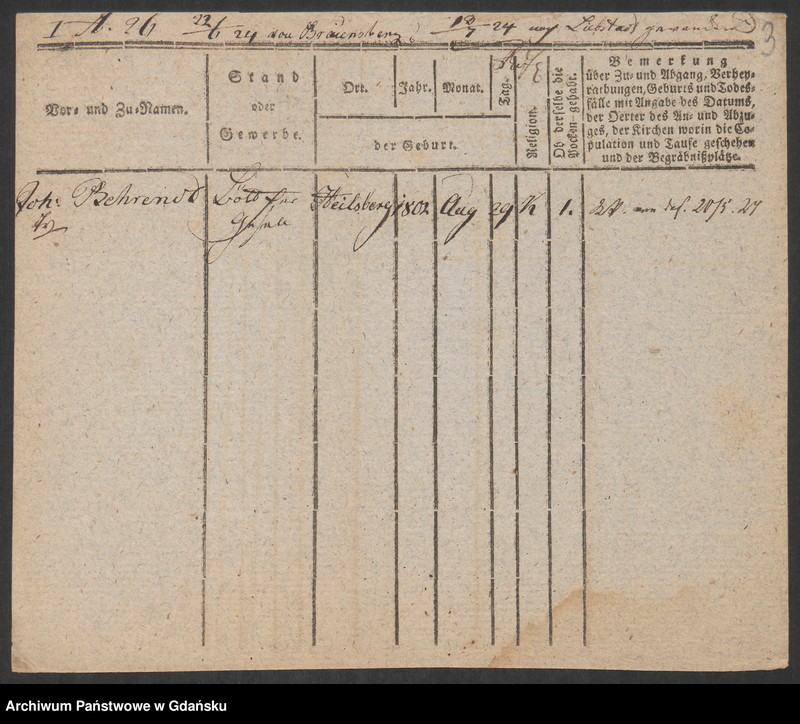 I A. 26 22/6 24 von Braunsberg 13/7 24 nach Liebstadt gewandert
3
Vor- und Zu-Namen.
Stand
oder
Gewerbe.
Ort.
Jahr.
Monat.
Tag.
der Geburt.
Religion.
Ob derselbe die
Pocken gehabt.
Bemerkung
über Zu- und Abgang, Verhey-
rathungen, Geburts und Todes-
fälle mit Angabe des Datums,
der Oerter des An- und Abzu-
ges, der Kirchen worin die Co-
pulation und Taufe geschehen
und der Begräbnißplätze.
Joh: Behrendt
Heilsberg
1802
Aug
29
K
1.
20/5. 27
Gesell